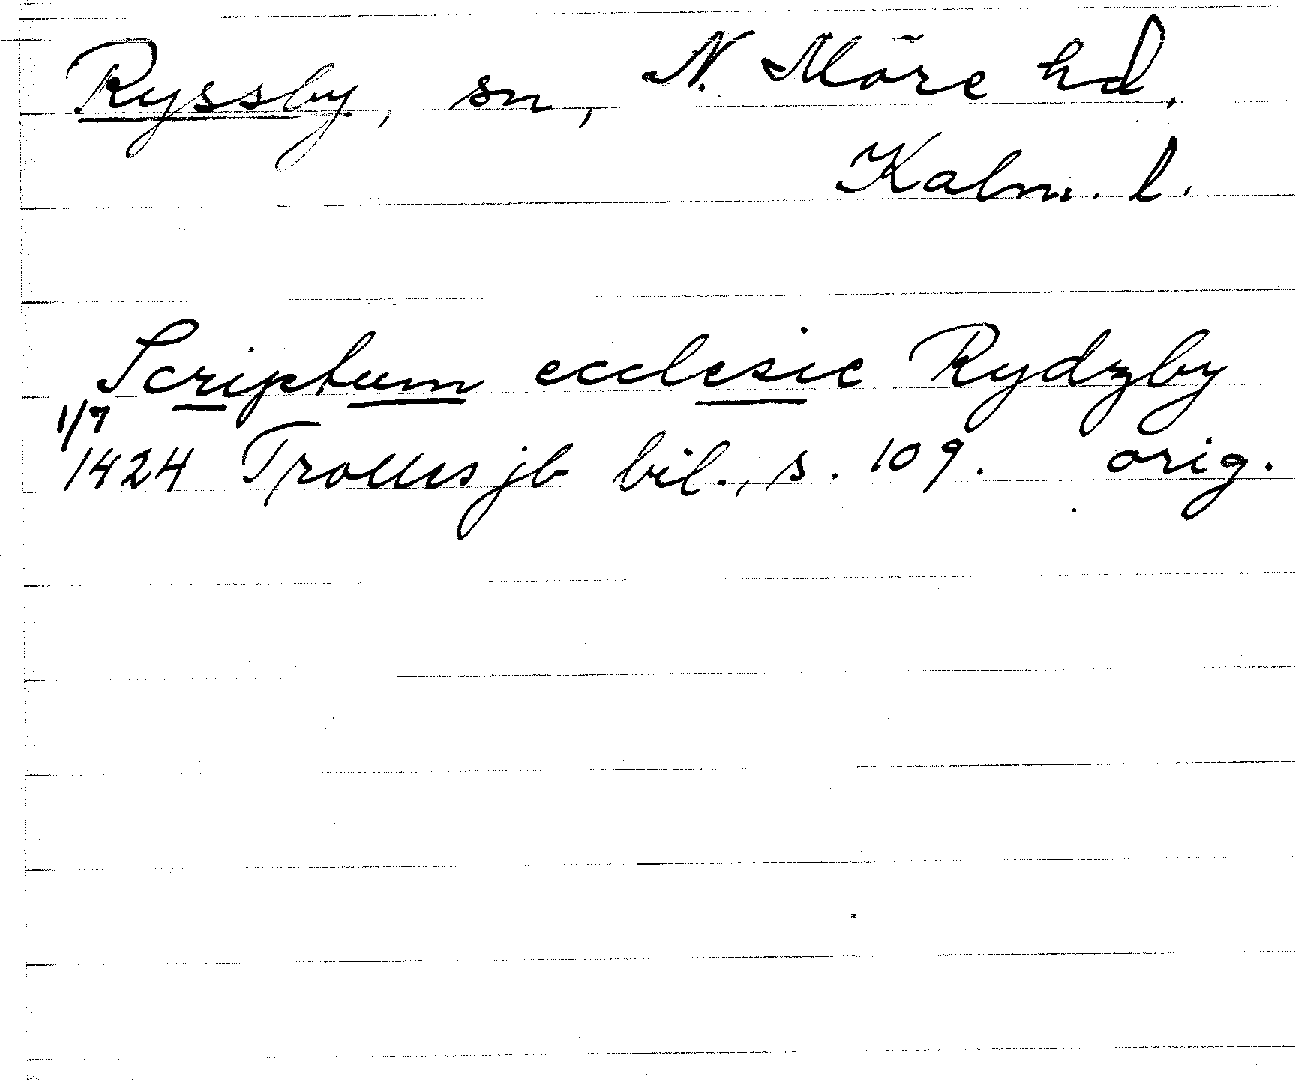 Ryssby, sn, N. Möre hd,
Kalm. l.
Scriptum ecclesie Rydzby
1/7
1424 Trolles jb bil., s. 109. orig.